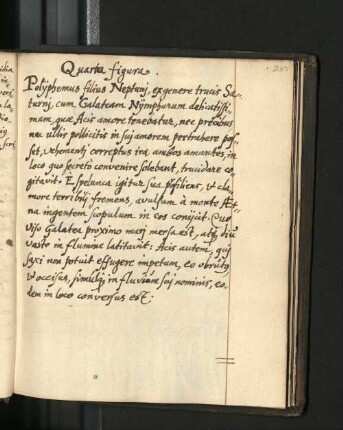 Quarta figura.
Polÿphemus filius Neptunj, ex genere trucis Sa-
turnj, cum Galateam Nÿmpharum delicatissi-
mam, quæ Acis amore tenebatur, nec precibus
nec ullis pollicitis in suj amorem pertrahere pos-
set, vehementj correptus ira ambos amantes, in
loco quo secreto convenire solebant, trucidare co-
gitavit. E spelunca igitur sua prosiliens, et cla-
more terribilj fremens, avulsum à monte Æt-
na ingentem scopulum in eos conijcit. Quo
viso Galatea proximo marj mersa est, atq, diu
vasto in flumine latitavit: Acis autem, quj
saxi non potuit effugere impetum, eo obrutq
et occisus, simulq, in fluvium suj nominis, eo-
dem in loco conversus est: